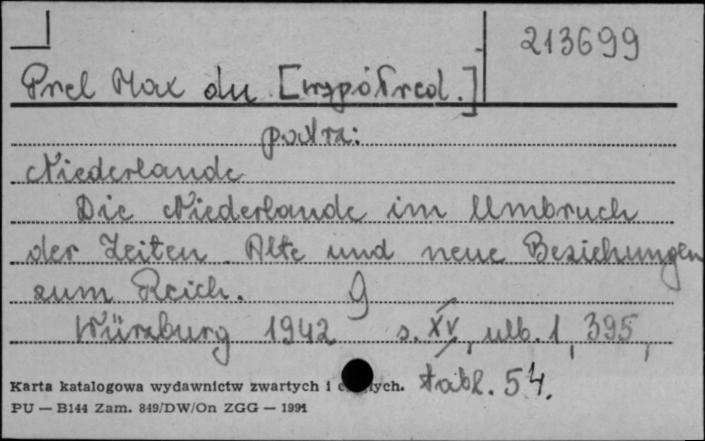 213699
Prel Max du [współred.]
patrz:
Niederlande
Die Niederlande im Umbruch
der Zeiten. Alte und neue Beziehungen
zum Reich. 9
Würzburg 1942 s. XV, ulb. 1, 395,
tabl. 54.
Karta katalogowa wydawnictw zwartych i ciągłych.
PU — B144 Zam. 849/DW/On ZGG — 1991